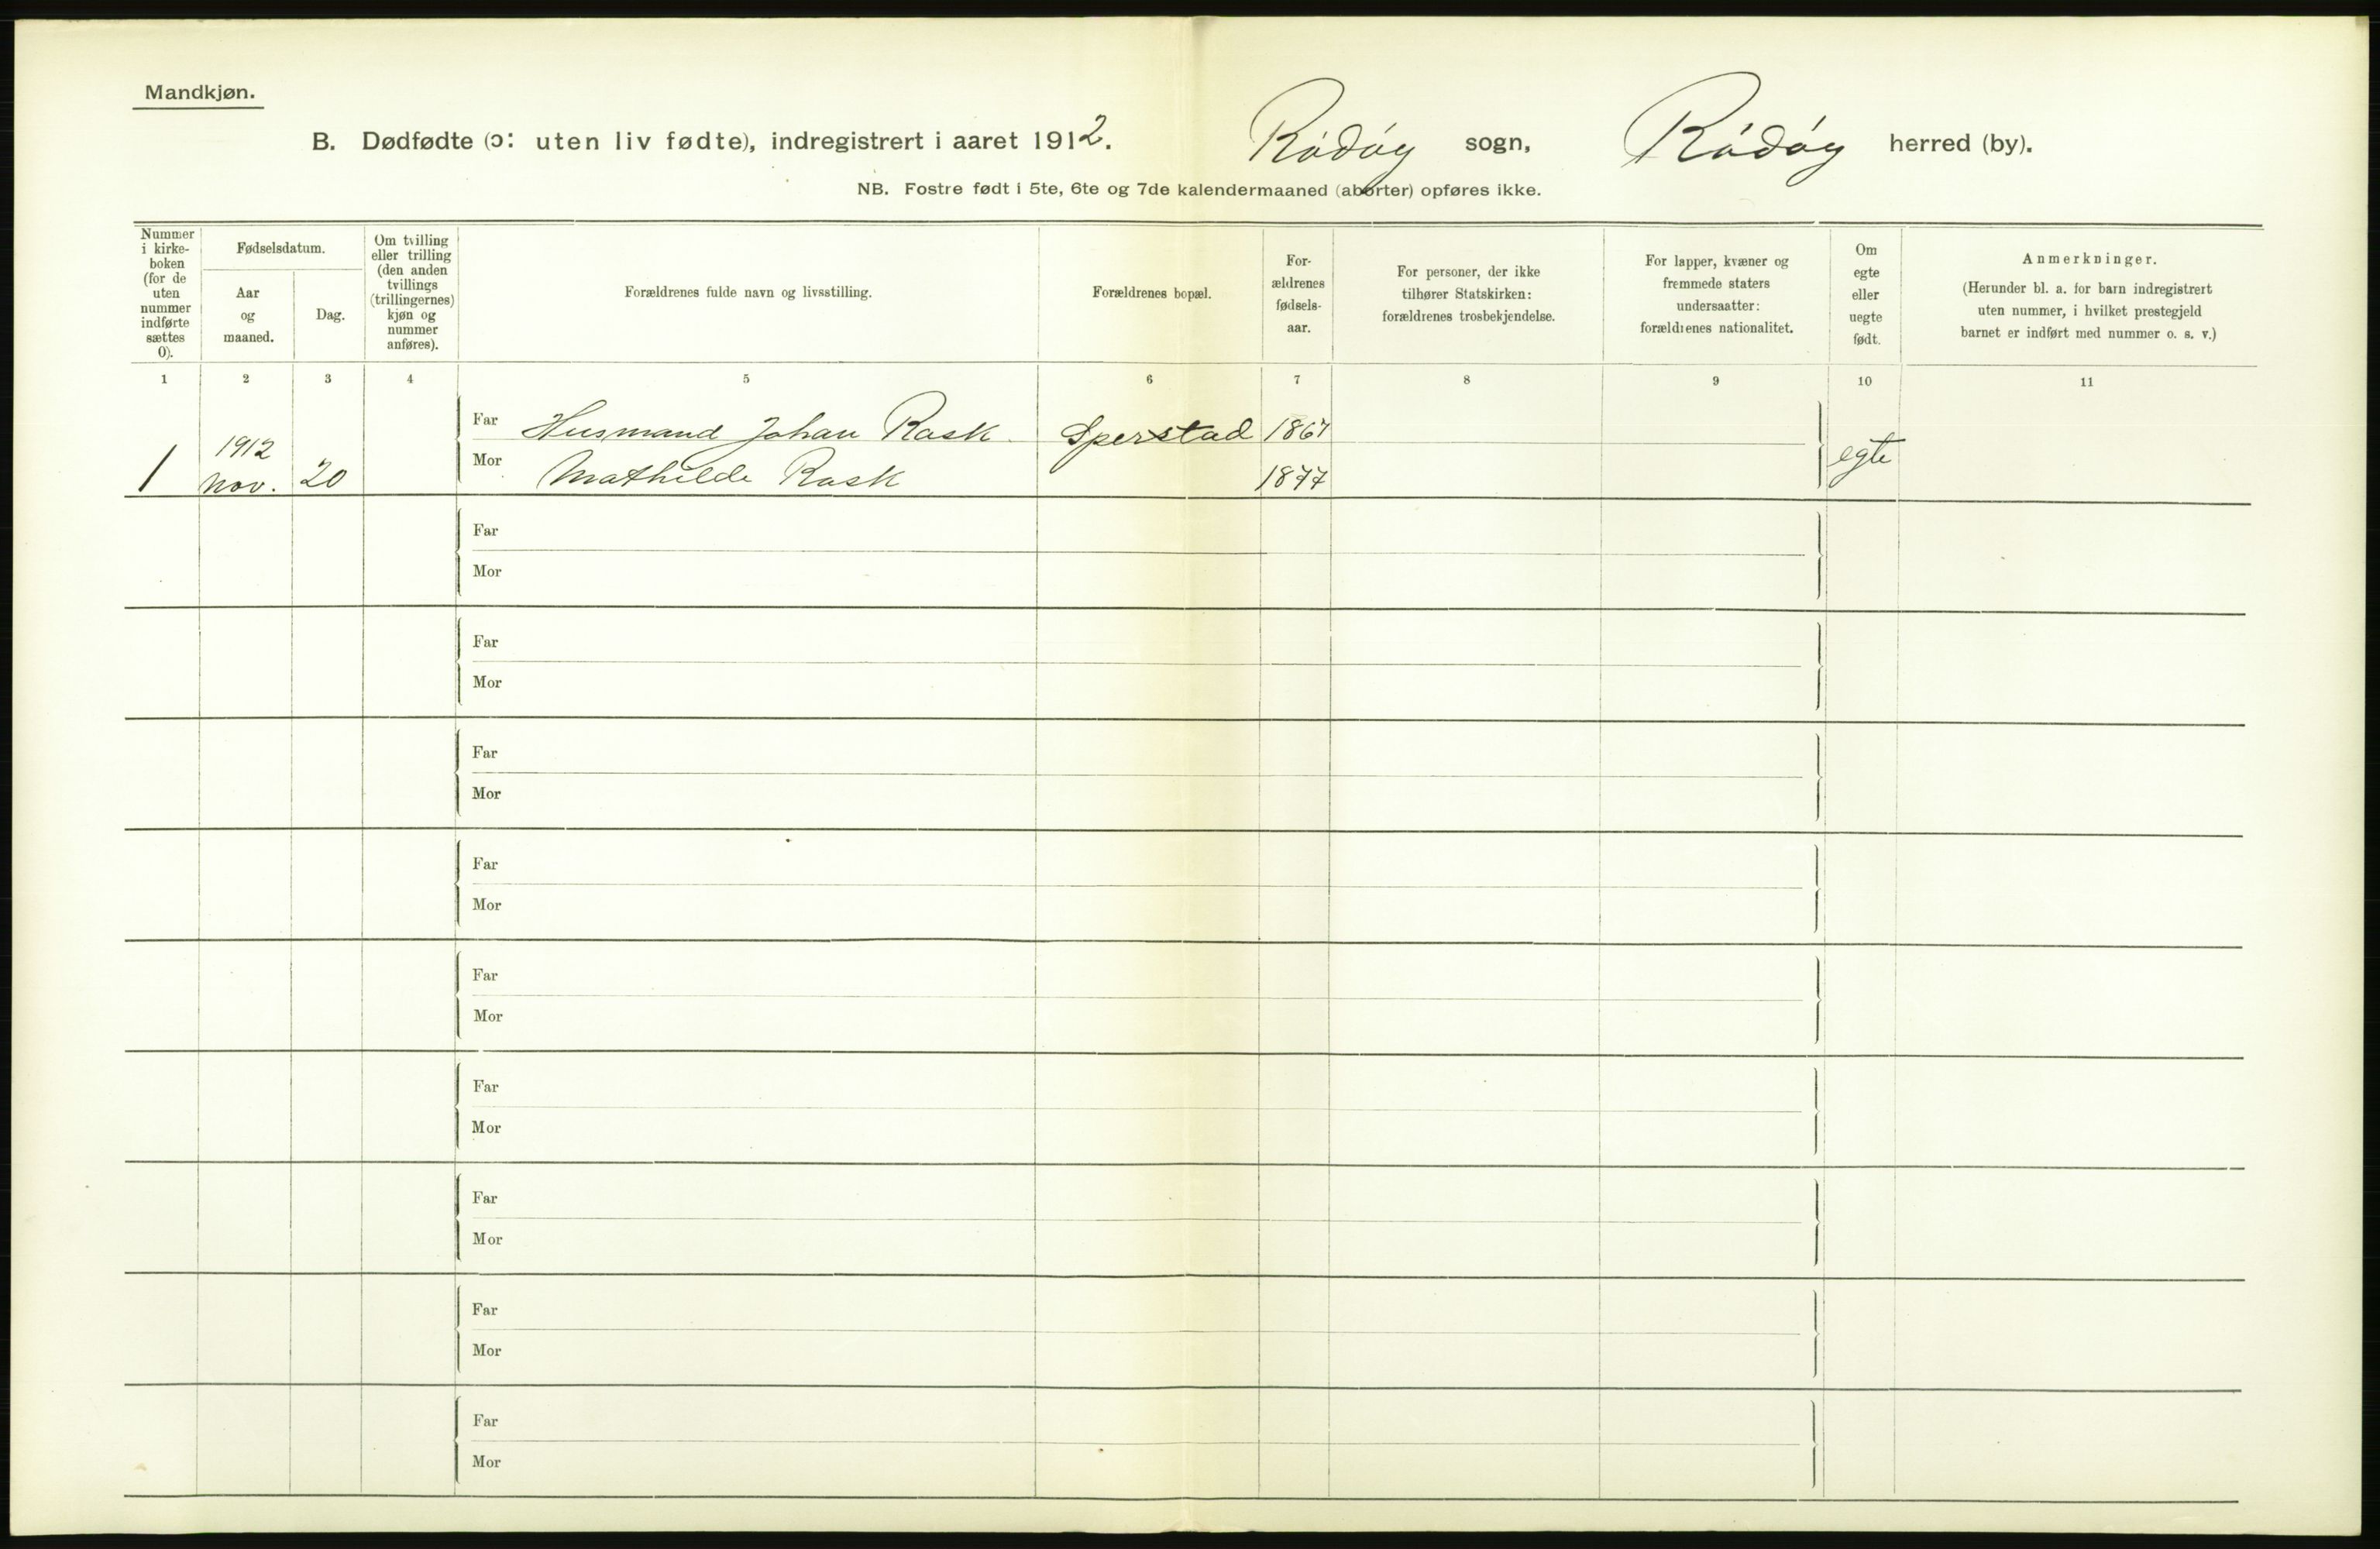 Mandkjøn.
B. Dødfødte (ɔ: uten liv fødte), indregistrert i aaret 1912. Rødøy sogn, Rødøy herred (by).
NB. Fostre født i 5te, 6te og 7de kalendermaaned (aborter) opføres ikke.
Nummer
i kirke-
boken
(for de
uten
nummer
indførte
sættes
0).
Fødselsdatum.
Aar
og
maaned.
Dag.
Om tvilling
eller trilling
(den anden
tvillings
(trillingernes)
kjøn og
nummer
anføres).
Forældrenes fulde navn og livsstilling.
Forældrenes bopæl.
For-
ældrenes
fødsels-
aar.
For personer, der ikke
tilhører Statskirken:
forældrenes trosbekjendelse.
For lapper, kvæner og
fremmede staters
undersaatter:
forældrenes nationalitet.
Om
egte
eller
uegte
født.
Anmerkninger.
(Herunder bl. a. for barn indregistrert
uten nummer, i hvilket prestegjeld
barnet er indført med nummer o. s. v.)
1 2 3 4 5 6 7 8 9 10 11
Far Husmand Johan Rask Sperstad 1867
1 1912 nov. 20 egte
Mor Mathilde Rask 1877
Far
Mor
Far
Mor
Far
Mor
Far
Mor
Far
Mor
Far
Mor
Far
Mor
Far
Mor
Far
Mor